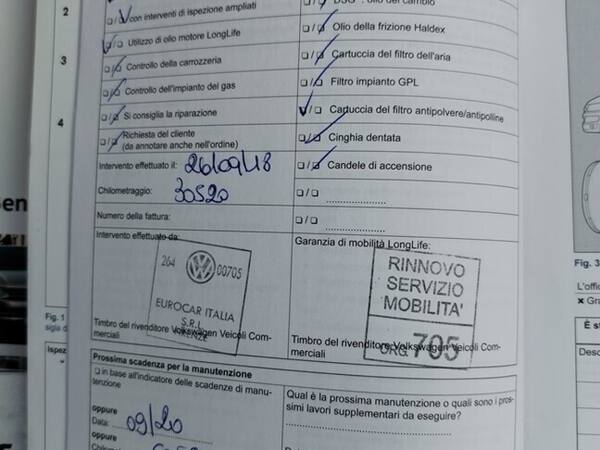 2
❏/❏ con interventi di ispezione ampliati
❏/❏ Utilizzo di olio motore LongLife
3
❏/❏ Controllo della carrozzeria
❏/❏ Controllo dell'impianto del gas
❏/❏ Si consiglia la riparazione
4
❏/❏ Richiesta del cliente
(da annotare anche nell'ordine)
Intervento effettuato il: 26/09/18
Chilometraggio: 30520
Numero della fattura:
❏/❏ Olio della frizione Haldex
❏/❏ Cartuccia del filtro dell'aria
❏/❏ Filtro impianto GPL
❏/❏ Cartuccia del filtro antipolvere/antipolline
❏/❏ Cinghia dentata
❏/❏ Candele di accensione
❏/❏
❏/❏
Intervento effettuato da:
264 00705
EUROCAR ITALIA
S.R.L.
Timbro del rivenditore Volkswagen Veicoli Com-
merciali
Garanzia di mobilità LongLife:
RINNOVO
SERVIZIO
MOBILITA'
ORG. 705
Timbro del rivenditore Volkswagen Veicoli Com-
merciali
Prossima scadenza per la manutenzione
❏ in base all'indicatore delle scadenze di manu-
tenzione
oppure
Data: 09/20
oppure
Qual è la prossima manutenzione o quali sono i pros-
simi lavori supplementari da eseguire?
Fig. 1
Fig. 3